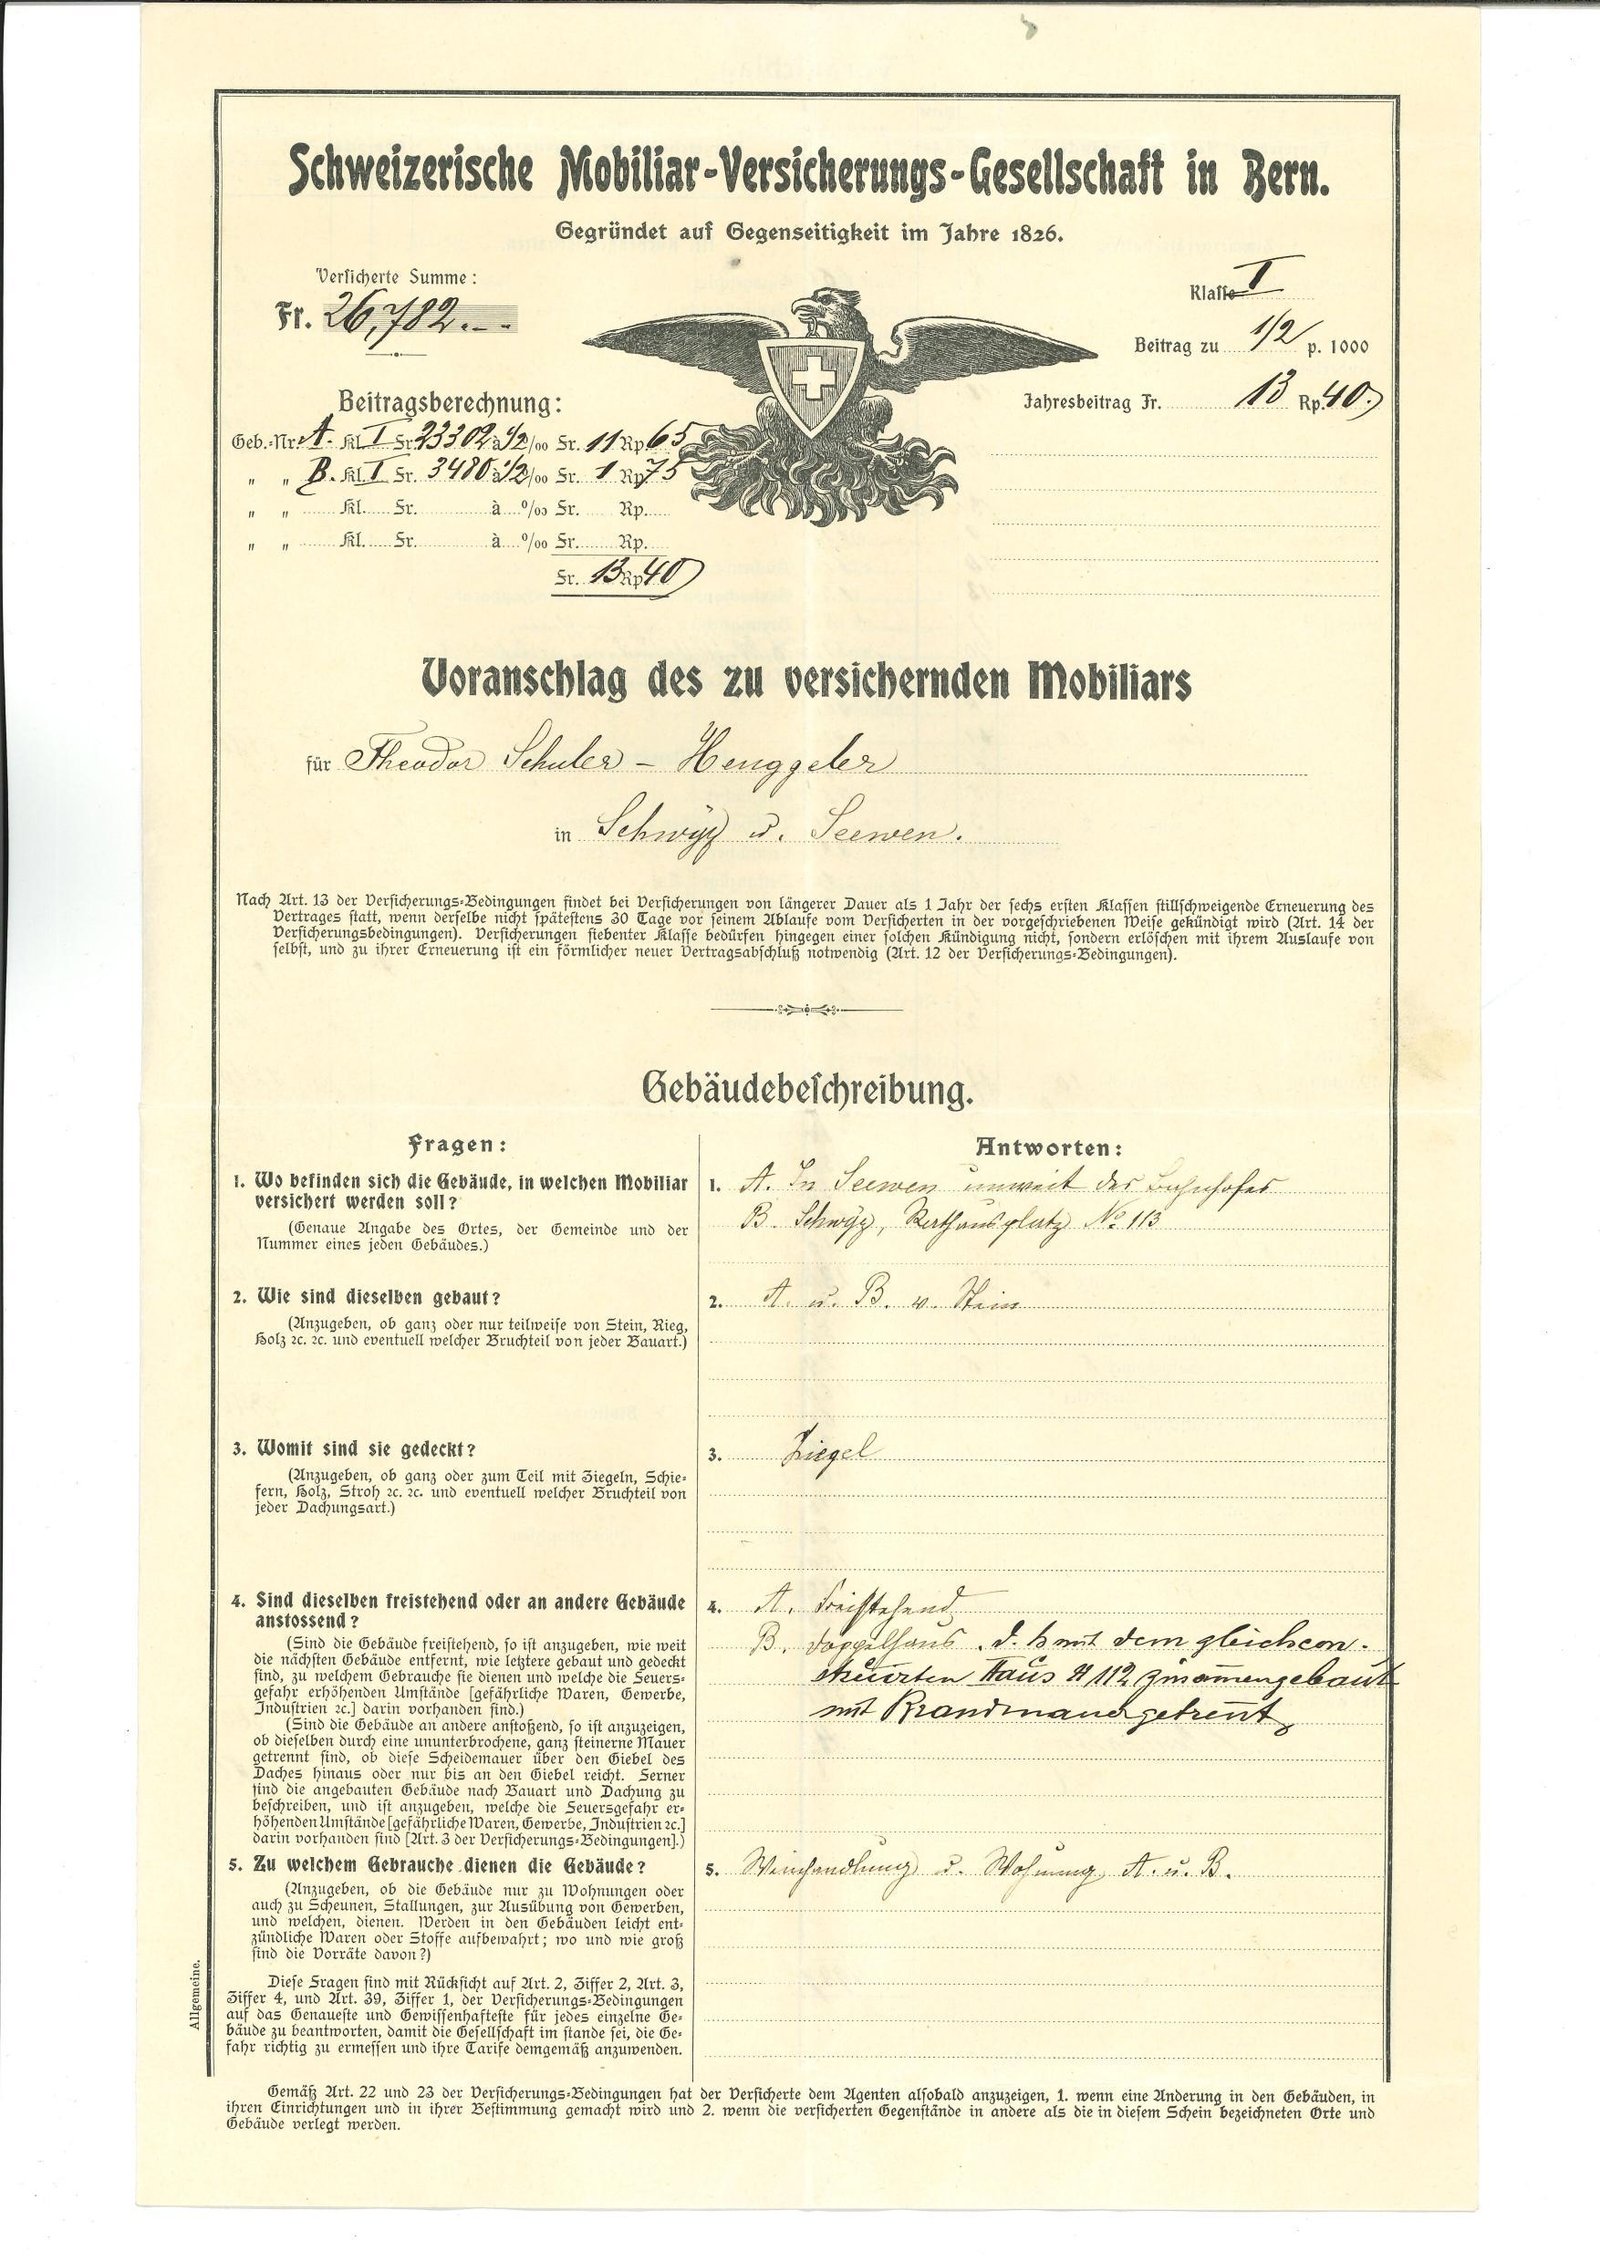 Schweizerische Mobiliar-Versicherungs-Gesellschaft in Bern.
Gegründet auf Gegenseitigkeit im Jahre 1826.
Versicherte Summe:
Fr. 26,782.--
Klasse I
Beitrag zu 1/2 p. 1000
Jahresbeitrag Fr. 13 Rp. 40.
Beitragsberechnung:
Geb.-Nr. A. Kl. I Fr. 23302 à 1/2 0/00 Fr. 11 Rp. 65
" " B. Kl. I Fr. 3480 à 1/2 0/00 Fr. 1 Rp. 75
" " Kl. Fr. à 0/00 Fr. Rp.
" " Kl. Fr. à 0/00 Fr. Rp.
Fr. 13 Rp 40
Voranschlag des zu versichernden Mobiliars
für Theodor Schuler - Henggeler
in Schwyz u. Seewen.
Nach Art. 13 der Versicherungs-Bedingungen findet bei Versicherungen von längerer Dauer als 1 Jahr der sechs ersten Klassen stillschweigende Erneuerung des
Vertrages statt, wenn derselbe nicht spätestens 30 Tage vor seinem Ablaufe vom Versicherten in der vorgeschriebenen Weise gekündigt wird (Art. 14 der
Versicherungsbedingungen). Versicherungen siebenter Klasse bedürfen hingegen einer solchen Kündigung nicht, sondern erlöschen mit ihrem Auslaufe von
selbst, und zu ihrer Erneuerung ist ein förmlicher neuer Vertragsabschluß notwendig (Art. 12 der Versicherungs-Bedingungen).
Gebäudebeschreibung.
Fragen:
1. Wo befinden sich die Gebäude, in welchen Mobiliar
versichert werden soll?
(Genaue Angabe des Ortes, der Gemeinde und der
Nummer eines jeden Gebäudes.)
2. Wie sind dieselben gebaut?
(Anzugeben, ob ganz oder nur teilweise von Stein, Rieg,
Holz ꝛc. ꝛc. und eventuell welcher Bruchteil von jeder Bauart.)
3. Womit sind sie gedeckt?
(Anzugeben, ob ganz oder zum Teil mit Ziegeln, Schie-
fern, Holz, Stroh ꝛc. ꝛc. und eventuell welcher Bruchteil von
jeder Dachungsart.)
4. Sind dieselben freistehend oder an andere Gebäude
anstossend?
(Sind die Gebäude freistehend, so ist anzugeben, wie weit
die nächsten Gebäude entfernt, wie letztere gebaut und gedeckt
sind, zu welchem Gebrauche sie dienen und welche die Feuers-
gefahr erhöhenden Umstände [gefährliche Waren, Gewerbe,
Industrien ꝛc.] darin vorhanden sind.)
(Sind die Gebäude an andere anstoßend, so ist anzuzeigen,
ob dieselben durch eine ununterbrochene, ganz steinerne Mauer
getrennt sind, ob diese Scheidemauer über den Giebel des
Daches hinaus oder nur bis an den Giebel reicht. Ferner
sind die angebauten Gebäude nach Bauart und Dachung zu
beschreiben, und ist anzugeben, welche die Feuersgefahr er-
höhenden Umstände [gefährliche Waren, Gewerbe, Industrien ꝛc.]
darin vorhanden sind [Art. 3 der Versicherungs-Bedingungen].)
5. Zu welchem Gebrauche dienen die Gebäude?
(Anzugeben, ob die Gebäude nur zu Wohnungen oder
auch zu Scheunen, Stallungen, zur Ausübung von Gewerben,
und welchen, dienen. Werden in den Gebäuden leicht ent-
zündliche Waren oder Stoffe aufbewahrt; wo und wie groß
sind die Vorräte davon?)
Diese Fragen sind mit Rücksicht auf Art. 2, Ziffer 2, Art. 3,
Ziffer 4, und Art. 39, Ziffer 1, der Versicherungs-Bedingungen
auf das Genaueste und Gewissenhafteste für jedes einzelne Ge-
bäude zu beantworten, damit die Gesellschaft im stande sei, die Ge-
fahr richtig zu ermessen und ihre Tarife demgemäß anzuwenden.
Antworten:
1. A. In Seewen unweit des Bahnhofes
B. Schwyz, Rathausplatz No 113
2. A. u. B. v. Stein
3. Ziegel
4. A. Freistehend
B. Doppelhaus. d. h mit dem gleichcon-
struirten Haus # 112 zusam̄engebaut
mit Brandmauer getren̄t
5. Weinhandlung u. Wohnung A. u. B.
Allgemeine.
Gemäß Art. 22 und 23 der Versicherungs-Bedingungen hat der Versicherte dem Agenten alsobald anzuzeigen, 1. wenn eine Änderung in den Gebäuden, in
ihren Einrichtungen und in ihrer Bestimmung gemacht wird und 2. wenn die versicherten Gegenstände in andere als die in diesem Schein bezeichneten Orte und
Gebäude verlegt werden.